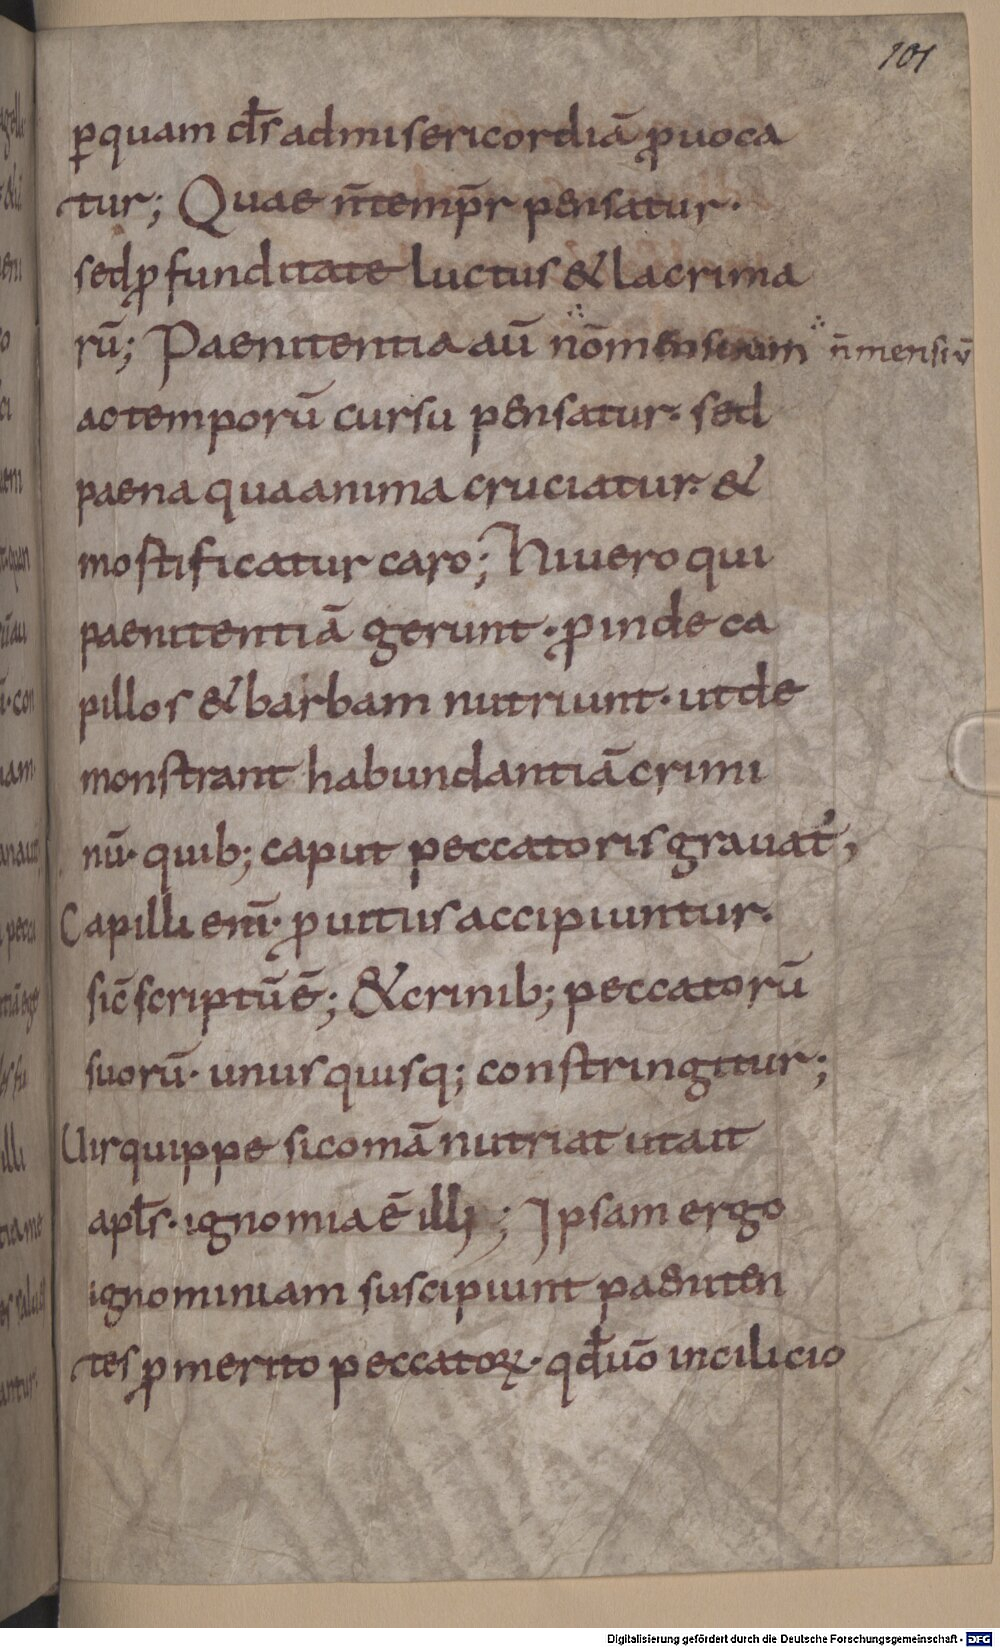 101
ꝑquam dr̄s admisericordiā ꝓuoca
tur; Quae n̄temp̄r pensatur·
sedꝓfunditate luctus & lacrima
rū; Paenitentia aū nōmensium n̄mensiū
actemporū cursu pensatur· sed
paena quaanima cruciatur· &
mostificatur caro; hiuero qui
paenitentiā gerunt· ꝓinde ca
pillos & barbam nutriunt· utde
monstrant habundantiā crimi
nū· quib; caput peccatoris grauat᷒,
Capilli enī· ꝓuitiis accipiuntur·
sic̄ scriptū ē; & crinib; peccatorū
suorū· unusquisq; constringitur;
Uirquippe sicomā nutriat utait
apl̄s· ignomia ē illi; Ipsam ergo
ignominiam suscipiunt paeniten
tes ꝓmerito peccatoꝝ· qd̄ uō incilicio
Digitalisierung gefördert durch die Deutsche Forschungsgemeinschaft - DFG